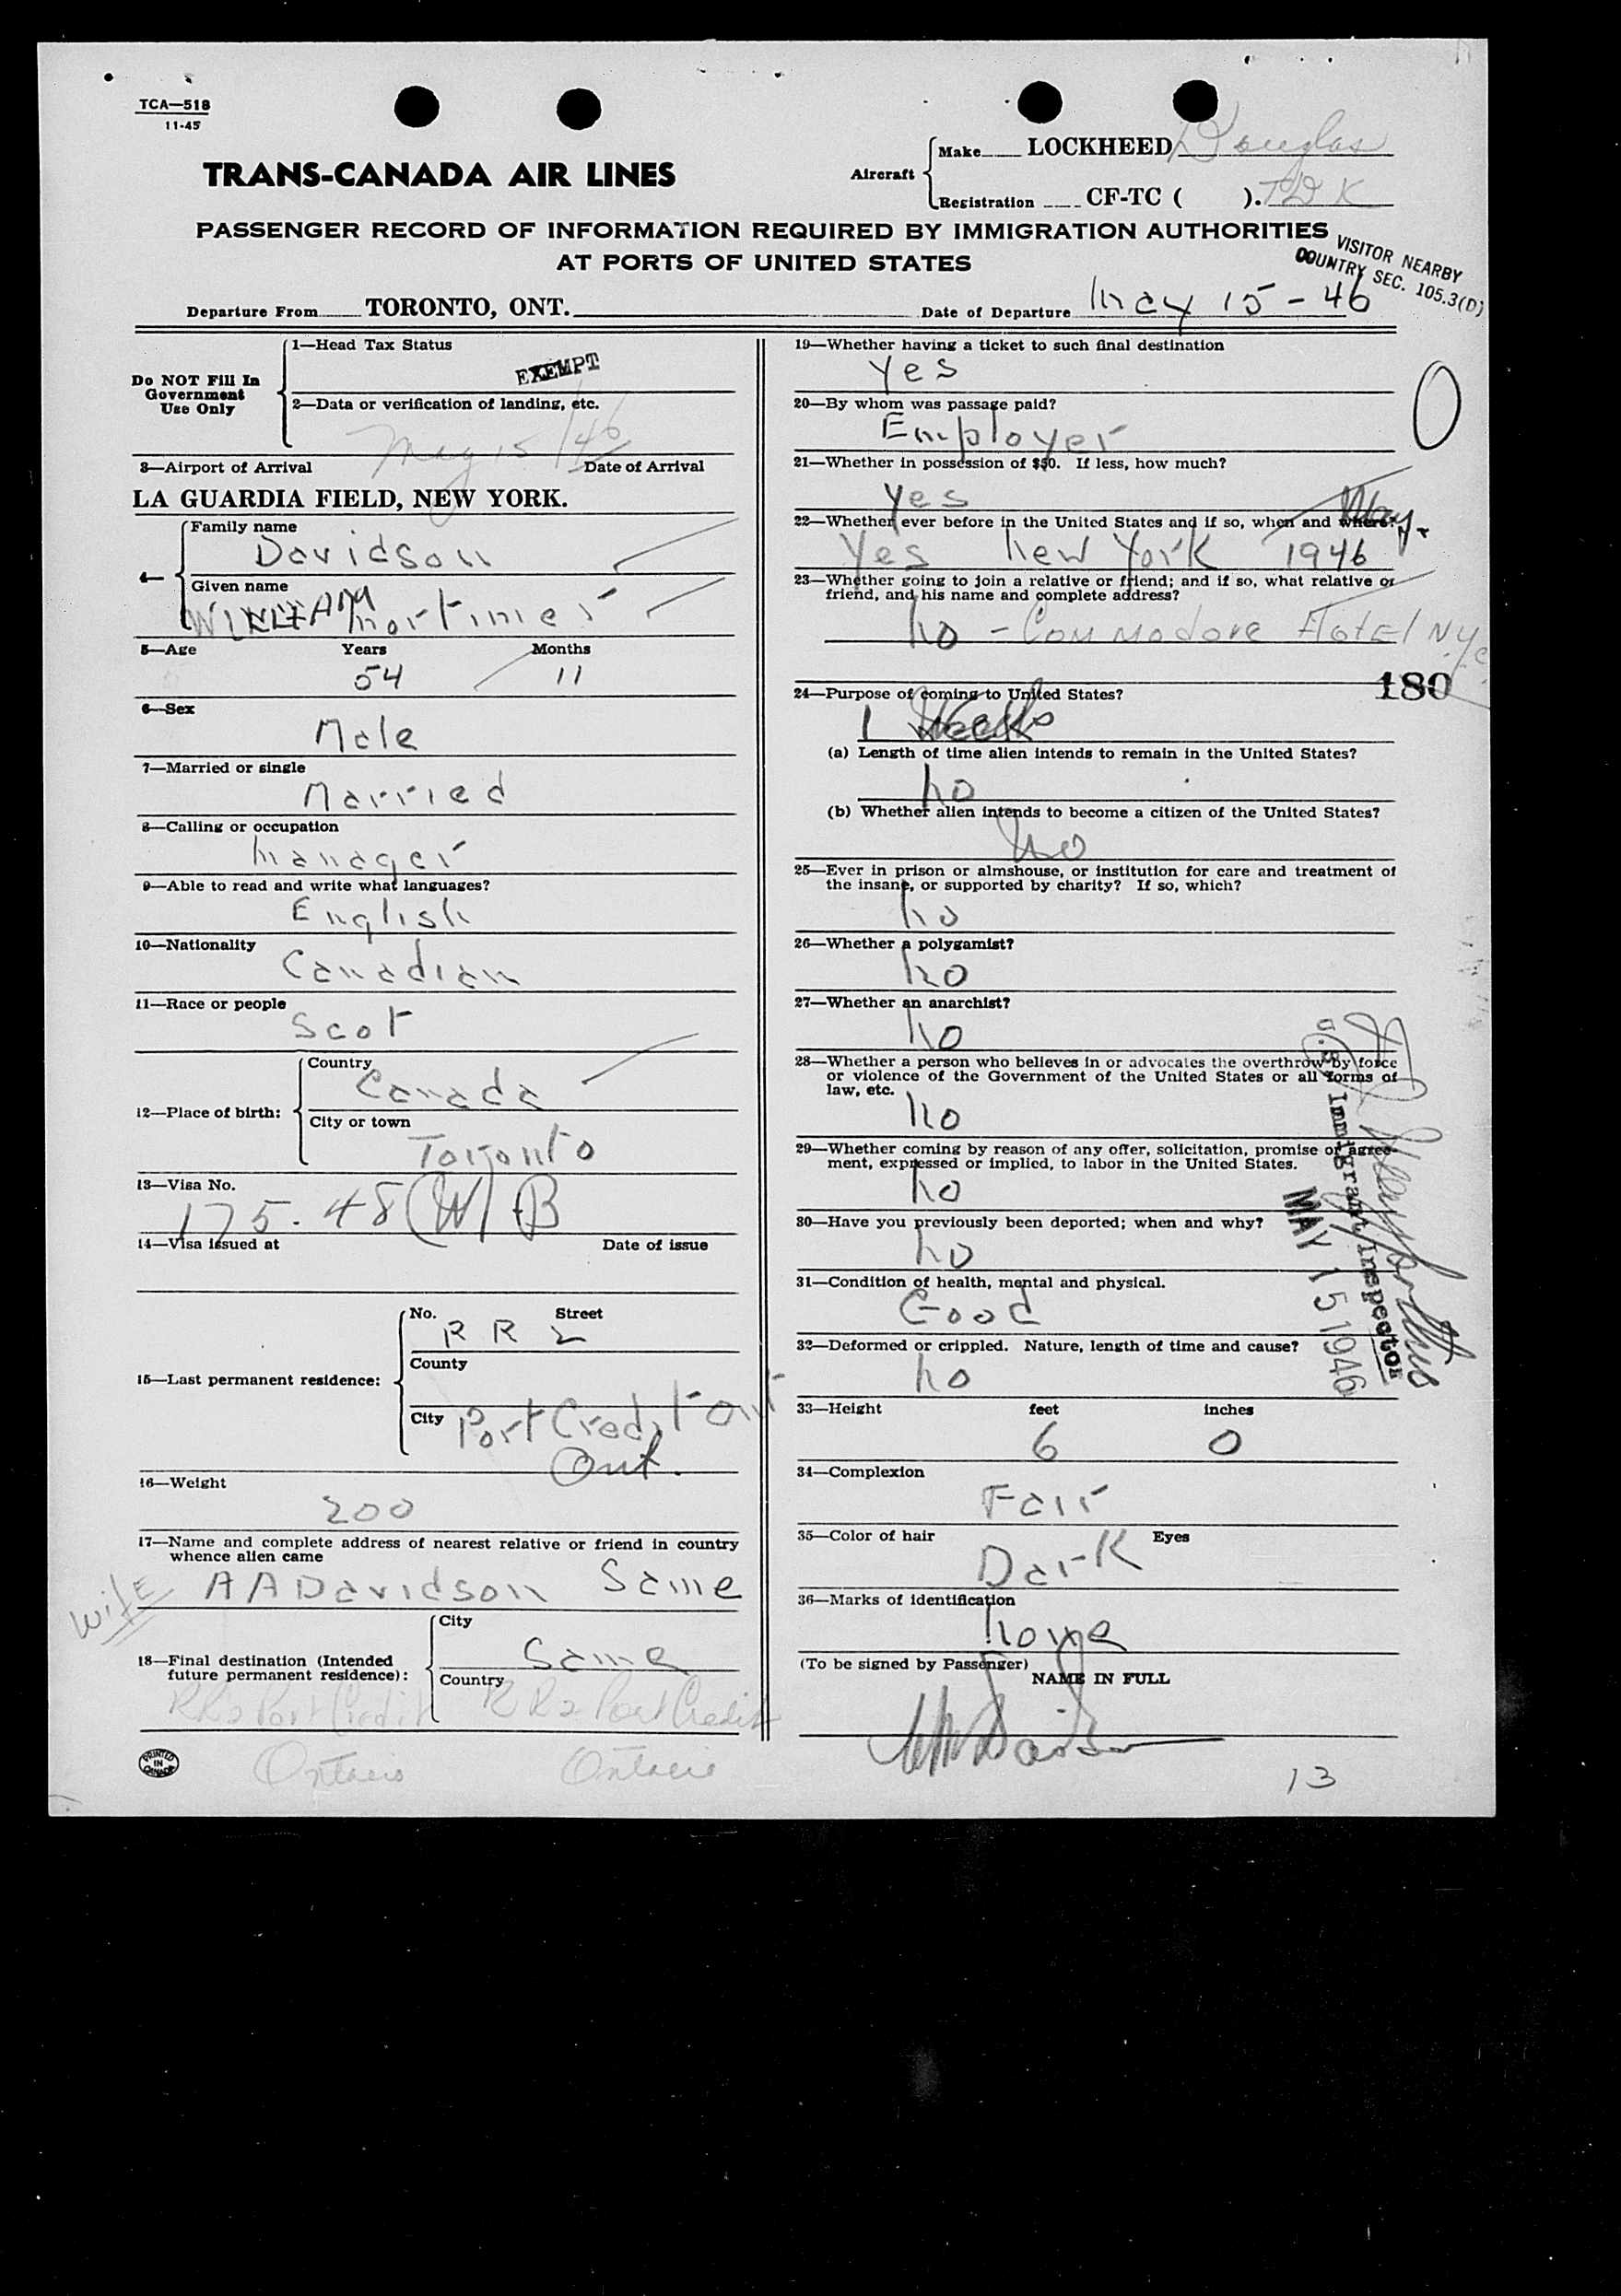 TCA—518
11-45
TRANS-CANADA AIR LINES
Aircraft
Make LOCKHEED Douglas
Registration CF-TC ( ). TDK
PASSENGER RECORD OF INFORMATION REQUIRED BY IMMIGRATION AUTHORITIES
AT PORTS OF UNITED STATES
VISITOR NEARBY
COUNTRY SEC. 105.3(D)
Departure From TORONTO, ONT.
Date of Departure May 15 - 46
Do NOT Fill In
Government
Use Only
1—Head Tax Status
EXEMPT
2—Data or verification of landing, etc.
May 15/46
3—Airport of Arrival Date of Arrival
LA GUARDIA FIELD, NEW YORK.
4—
Family name
Davidson
Given name
WILLIAM Mortimer
5—Age Years Months
54 11
6—Sex
Male
7—Married or single
Married
8—Calling or occupation
Manager
9—Able to read and write what languages?
English
10—Nationality
Canadian
11—Race or people
Scot
12—Place of birth:
Country
Canada
City or town
Toronto
13—Visa No.
175.48 (W) B
14—Visa issued at Date of issue
15—Last permanent residence:
No. Street
R R 2
County
City Port Credit Ont
Ont.
16—Weight
200
17—Name and complete address of nearest relative or friend in country
whence alien came
wife A A Davidson Same
18—Final destination (Intended
future permanent residence):
City
Same
Country
RR2 Port Credit RR2 Port Credit
Ontario Ontario
PRINTED
IN
CANADA
19—Whether having a ticket to such final destination
Yes
0
20—By whom was passage paid?
Employer
21—Whether in possession of $50. If less, how much?
Yes
22—Whether ever before in the United States and if so, when and where?
May.
Yes New York 1946
23—Whether going to join a relative or friend; and if so, what relative or
friend, and his name and complete address?
no - Commodore Hotel NYC
180
24—Purpose of coming to United States?
1 Week
(a) Length of time alien intends to remain in the United States?
no
(b) Whether alien intends to become a citizen of the United States?
No
25—Ever in prison or almshouse, or institution for care and treatment of
the insane, or supported by charity? If so, which?
no
26—Whether a polygamist?
no
27—Whether an anarchist?
no
28—Whether a person who believes in or advocates the overthrow by force
or violence of the Government of the United States or all forms of
law, etc.
no
29—Whether coming by reason of any offer, solicitation, promise or agree-
ment, expressed or implied, to labor in the United States.
no
30—Have you previously been deported; when and why?
no
31—Condition of health, mental and physical.
Good
32—Deformed or crippled. Nature, length of time and cause?
no
U.S. Immigrant Inspector
MAY 15 1946
33—Height feet inches
6 0
34—Complexion
Fair
35—Color of hair Eyes
Dark
36—Marks of identification
none
(To be signed by Passenger)
NAME IN FULL
WM Davidson
13